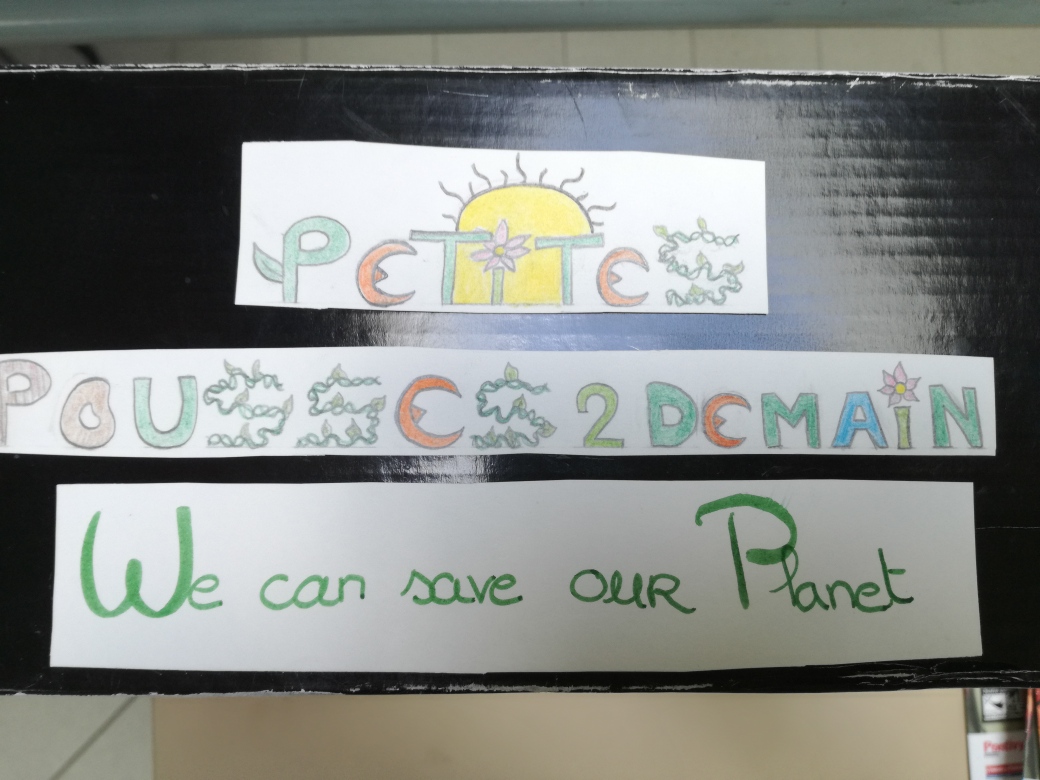 PETiTES
POUSSES 2 DEMAiN
We can save our Planet